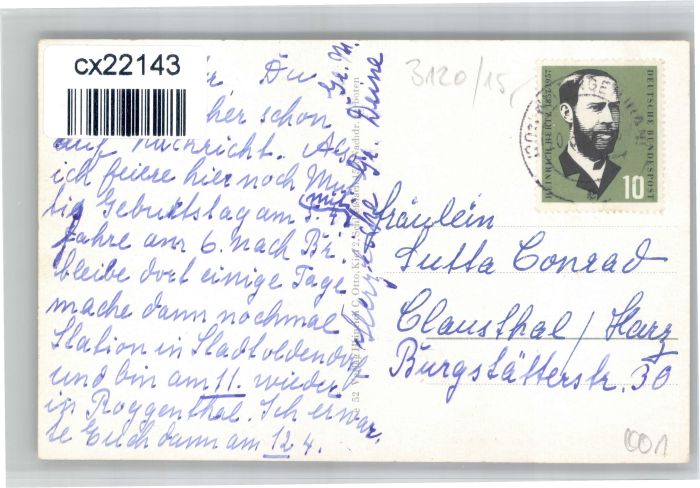 cx22143
Du
her schon
auf Nachricht. Also
ich feiere hier noch Mut
tis Geburtstag am 5. 4.
mit,
fahre am 6. nach Br.
bleibe dort einige Tage
mache dann nochmal
Station in Stadtoldendorf
und bin am 11. wieder
in Roggenthal. Ich erwar
te Euch dann am 12 4.
Herzliche Gr. Deine
Gr. M.
3120/15,
HEINRICH HERTZ 1857-1957
DEUTSCHE BUNDESPOST
10
Fräulein
Jutta Conrad
Clausthal / Harz
Burgstätterstr. 30
001